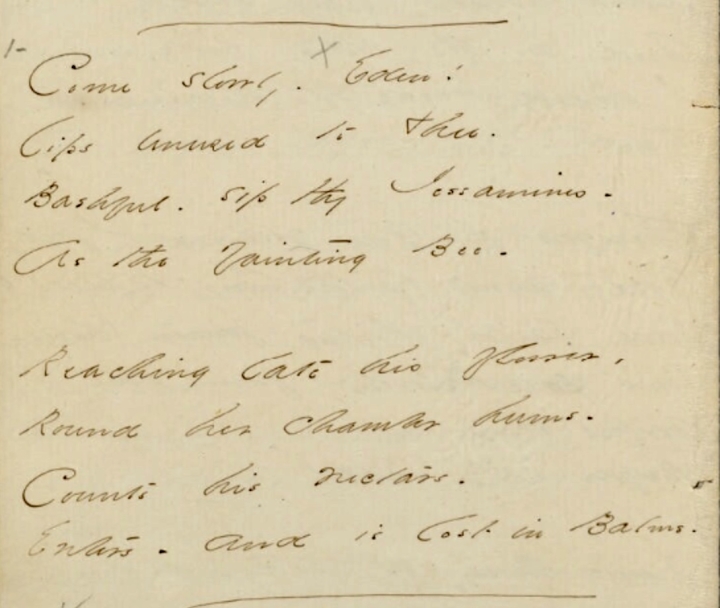 1-
x
Come slowly. Eden!
Lips unused to Thee.
Bashful. sip thy Jessamines -
As the fainting Bee -
Reaching late his flower,
Round her chamber hums -
Counts his nectars.
Enters - and is lost in Balms.